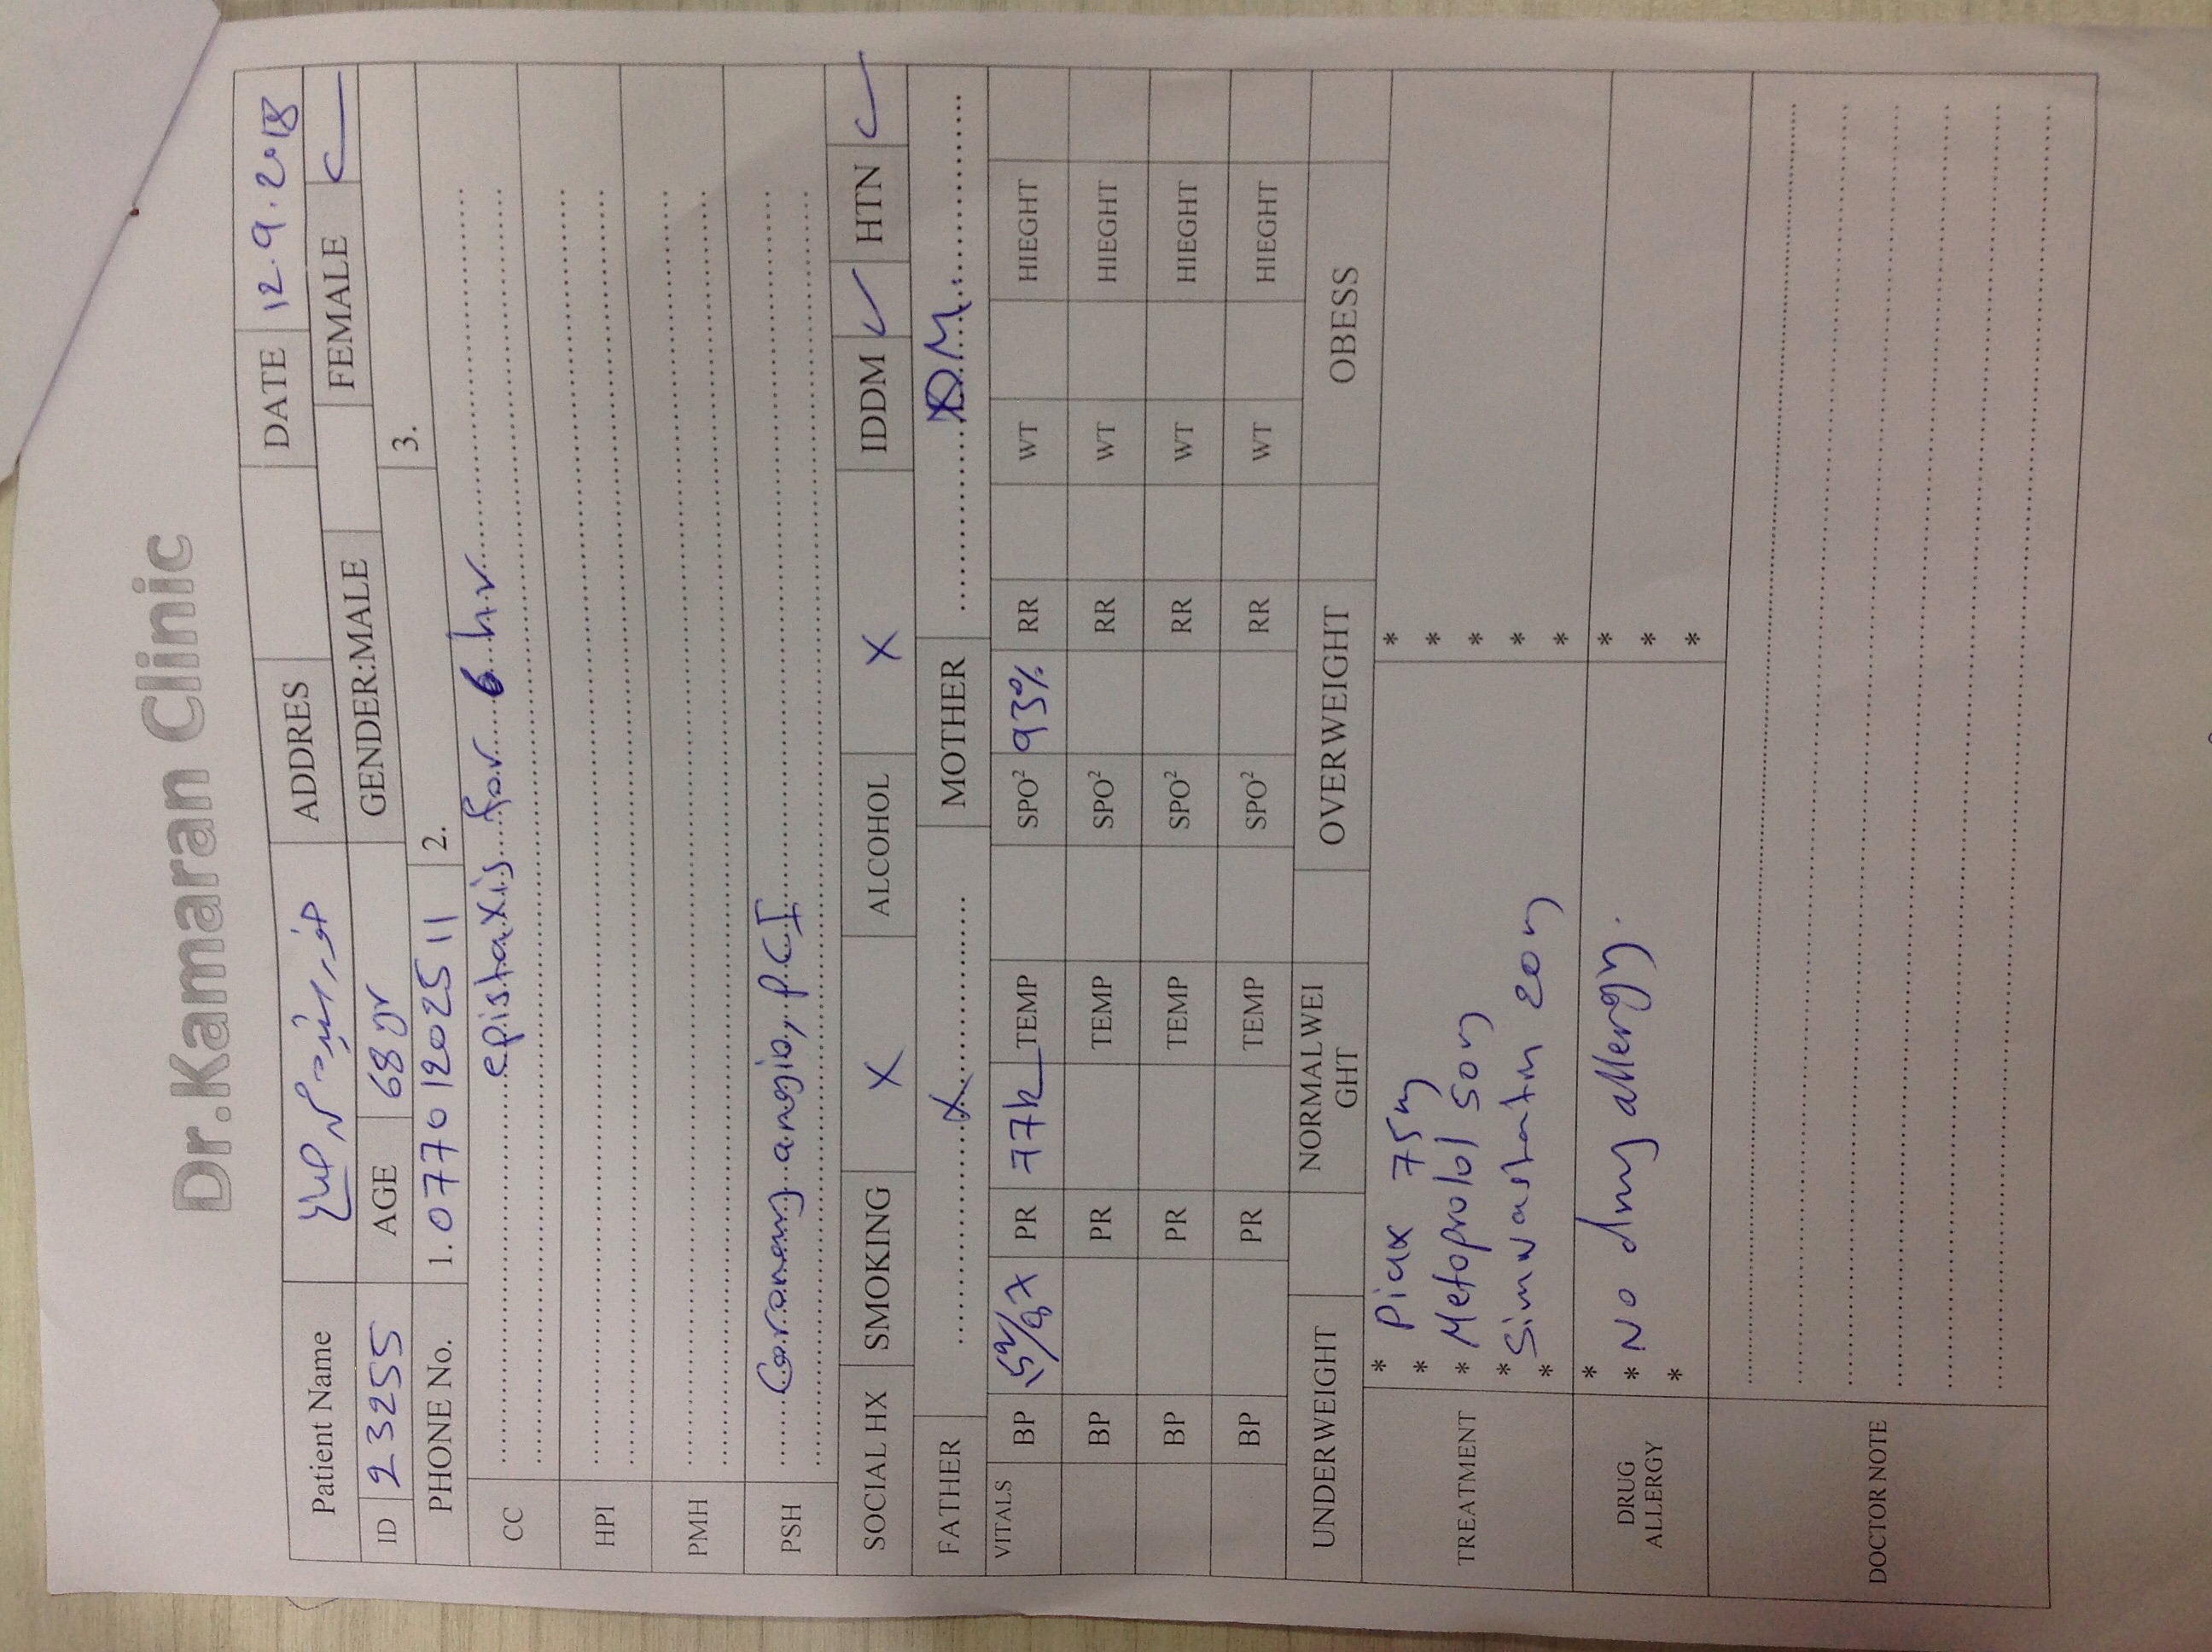 Dr.Kamaran Clinic
Patient Name ADDRES DATE 12.9.2018
ID 23255 AGE 68 yr GENDER:MALE FEMALE ✓
PHONE No. 1. 07701202511 2. 3.
CC epistaxis for 6 hr
HPI
PMH
PSH Coronary angio, PCI
SOCIAL HX SMOKING X ALCOHOL X IDDM ✓ HTN ✓
FATHER X MOTHER DM
VITALS BP PR TEMP SPO² 93% RR WT HIEGHT
BP PR TEMP SPO² RR WT HIEGHT
BP PR TEMP SPO² RR WT HIEGHT
BP PR TEMP SPO² RR WT HIEGHT
UNDERWEIGHT NORMALWEI
GHT OVERWEIGHT OBESS
TREATMENT
* *
* *
* *
* *
* *
75m
Metoprolol 50m
Simvastatin 20m
DRUG
ALLERGY
* *
* No drug allergy. *
* *
DOCTOR NOTE